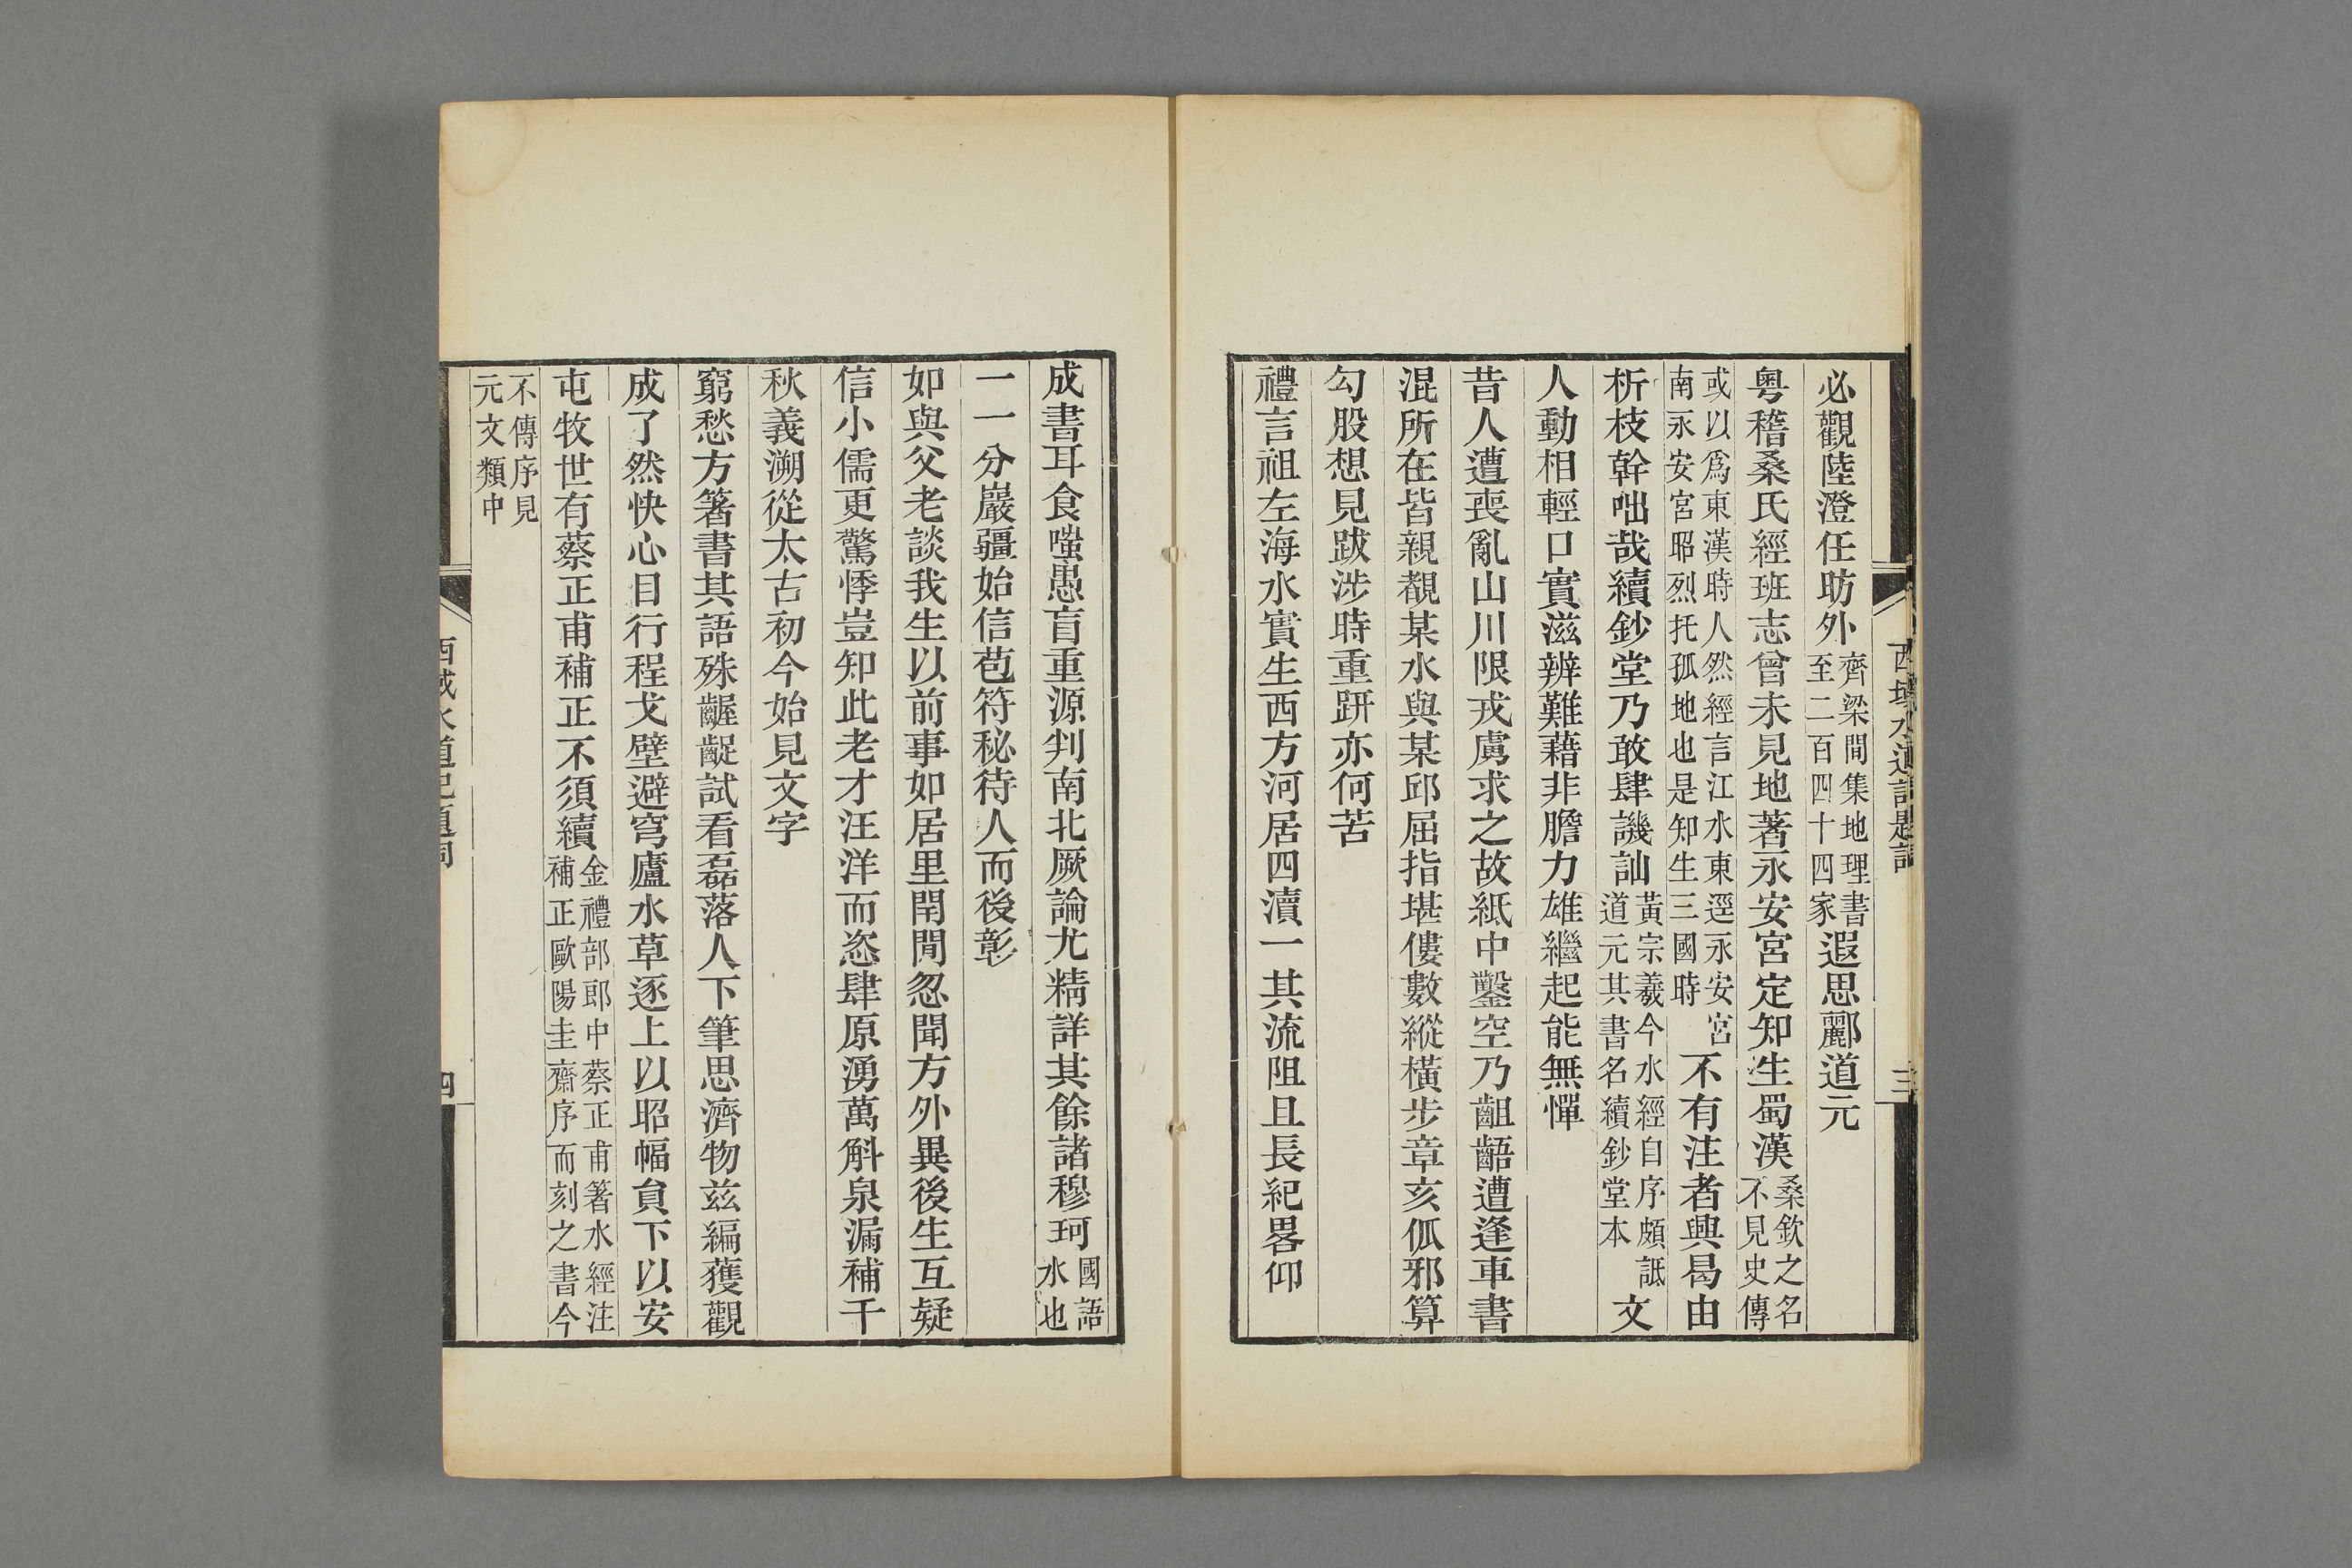 必觀陸澄任昉外齊梁閒集地理書至二百四十四家遐思酈道元
粵稽桑氏經班志曾未見地著永安宮定知生蜀漢桑欽之名不見史傳
或以爲東漢時人然經言江水東逕永安宮南永安宮昭烈托孤地也是知生三國時不有注者興曷由
析枝幹咄哉續鈔堂乃敢肆譏訕黃宗羲今水經自序頗詆道元其書名續鈔堂本文
人動相輕口實滋辨難藉非膽力雄繼起能無憚
昔人遭喪亂山川限戎虜求之故紙中鑿空乃齟齬遭逢車書
混所在皆親覩某水與某邱屈指堪僂數縱橫步章亥佤邪算
勾股想見跋涉時重趼亦何苦
禮言祖左海水實生西方河居四瀆一其流阻且長紀畧仰
西域水道記題詞
三
成書耳食嗤愚盲重源判南北厥論尤精詳其餘諸穆珂國語水也
一一分巖疆始信苞符秘待人而後彰
如與父老談我生以前事如居里閈閒忽聞方外異後生互疑
信小儒更驚悸豈知此老才汪洋而恣肆原湧萬斛泉漏補千
秋義溯從太古初今始見文字
窮愁方箸書其語殊齷齪試看磊落人下筆思濟物兹編獲觀
成了然快心目行程戈壁避穹廬水草逐上以昭幅員下以安
屯牧世有蔡正甫補正不須續金禮部郎中蔡正甫箸水經注補正歐陽圭齋序而刻之書今
不傳序見元文類中
西域水道記題詞
四